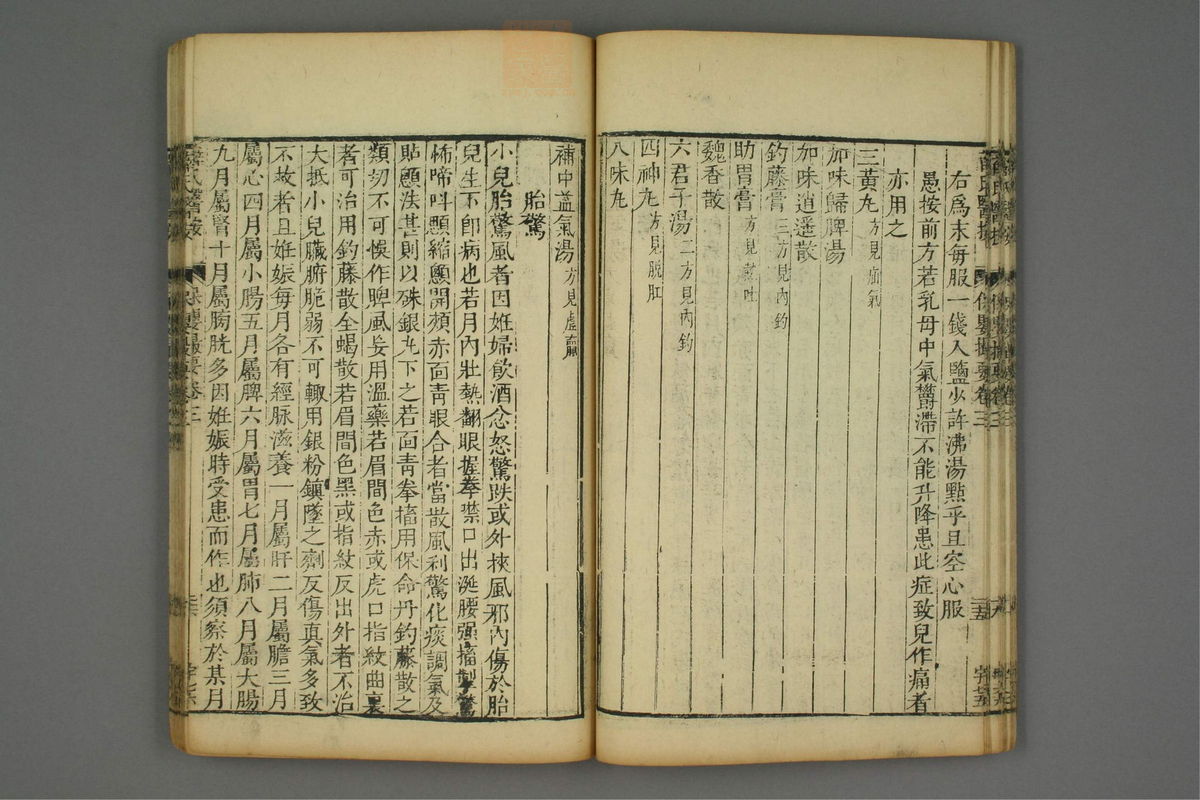 右爲末每服一錢入鹽少許沸湯點乎且空心服
愚按前方若乳母中氣欝滯不能升降患此症致兒作痛者
亦用之
三黃丸方見疝氣
加味歸脾湯
加味逍遥散
釣藤膏三方見内釣
助胃膏方見熱吐
魏香散
六君子湯二方見内釣
四神丸方見脱肛
八味丸
補中益氣湯方見虚羸
胎驚
小兒胎驚風者因姙婦飲酒忿怒驚跌或外挾風邪内傷於胎
兒生下卽病也若月内壯熱翻眼握拳噤口出涎腰强搐掣驚
怖啼呌顋縮顖開頰赤面青眼合者當散風利驚化痰調氣及
貼顖法甚則以硃銀丸下之若面青拳搐用保命丹釣藤散之
類切不可悞作脾風妄用温藥若眉間色赤或虎口指紋曲裏
者可治用釣藤散全蝎散若眉間色黑或指紋反出外者不治
大抵小兒臟腑脆弱不可輙用銀粉鎭墜之劑反傷眞氣多致
不故者且姙娠毎月各有經脉滋養一月屬肝二月屬膽三月
屬心四月屬小腸五月屬脾六月屬胃七月屬肺八月屬大腸
九月屬腎十月屬膀胱多因姙娠時受患而作也須察於某月
薛氏醫按 保嬰撮要卷三